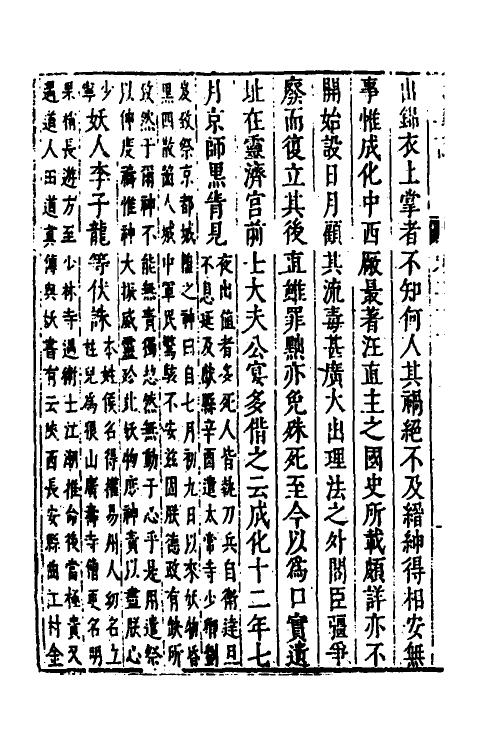 出錦衣上掌者不知何人其禍絕不及縉紳得相安無
事惟成化中西厰最著汪直主之國史所載頗詳亦不
開始設日月顧其流毒甚廣大出理法之外閣臣彊爭
廢而復立其後直雖罪黜亦免殊死至今以爲口實遺
址在靈濟宮前士大夫公宴多借之云成化十二年七
月京師黑眚見夜出值者多死人皆執刀兵自衛達旦
不息延及獻縣辛酉遣太常寺少卿劉
岌致祭京都城隍之神曰自七月初九日以來妖物昏
黑四散傷人城中軍民驚駭不安兹因朕德政有缺所
致然于爾神不能無責獨恝然無動于心乎是用遣祭
以伸虔禱惟神大振威靈殄此妖物庶神責以盡朕心
少
寧妖人李子龍等伏誅本姓侯名得權易州人幼名立
柱兒爲狠山廣壽寺僧更名明
果稱長遊方至少林寺遇術士江潮推命後當極貴又
遇道人田道真傳與妖書有云陜西長安縣曲江村金